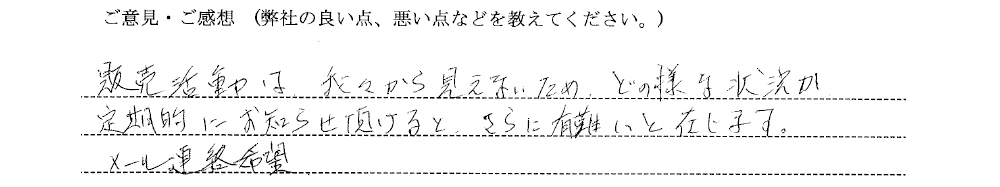 ご意見・ご感想 （弊社の良い点、悪い点などを教えてください。）
販売活動は、我々から見えないため、どの様な状況か
定期的にお知らせ頂けると、さらに有難いと存じます。
メール連絡希望